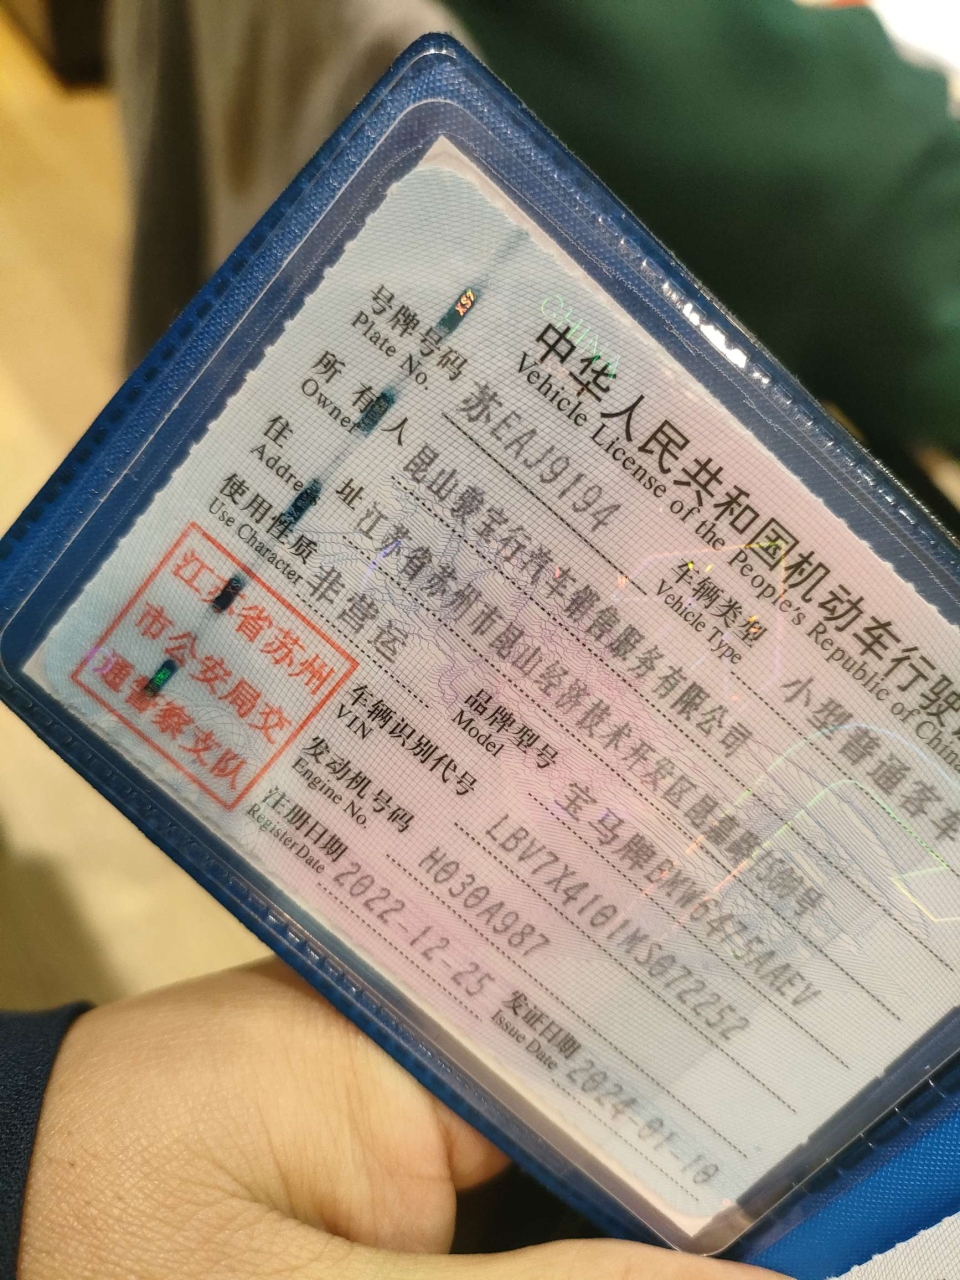 CHINA
中华人民共和国机动车行驶
Vehicle License of the People's Republic of China
号牌号码 苏EAJ9194 车辆类型 小型普通客车
Plate No. Vehicle Type
所有人 昆山宝行汽车销售服务有限公司
Owner
住址 江苏省苏州市昆山经济技术开发区昆号
Address
使用性质 非营运 品牌型号 宝马牌BMW6475AAEV
Use Character Model
江苏省苏州
市公安局交
通警察支队
车辆识别代号 LBV7X4101MS072252
VIN
发动机号码 H030A987
Engine No.
注册日期 2022-12-25 发证日期 2024-01-10
Register Date Issue Date